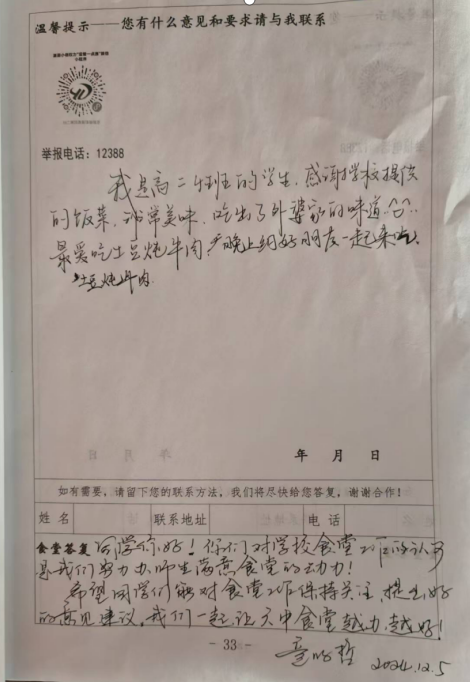 温馨提示——您有什么意见和要求请与我联系
举报电话：12388
我是高二4班的学生，感谢学校提供
的饭菜，非常美味，吃出了外婆家的味道
最爱吃土豆炖牛肉，晚上约好朋友一起来吃
土豆炖牛肉
年 月 日
如有需要，请留下您的联系方法，我们将尽快给您答复，谢谢合作！
姓名 联系地址 电话
食堂答复 同学你好！你们对学校食堂工作的认可
是我们努力办师生满意食堂的动力！
希望同学们能对食堂工作保持关注，提出好
的意见建议，我们一起让天中食堂越办越好！
- 33 -
2024.12.5